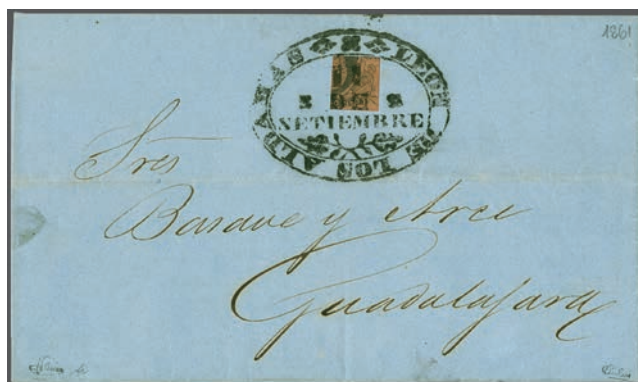 1861
LEON DE LOS ALDAMAS
DE
SETIEMBRE
Sres
Basave y Arce
Guadalajara